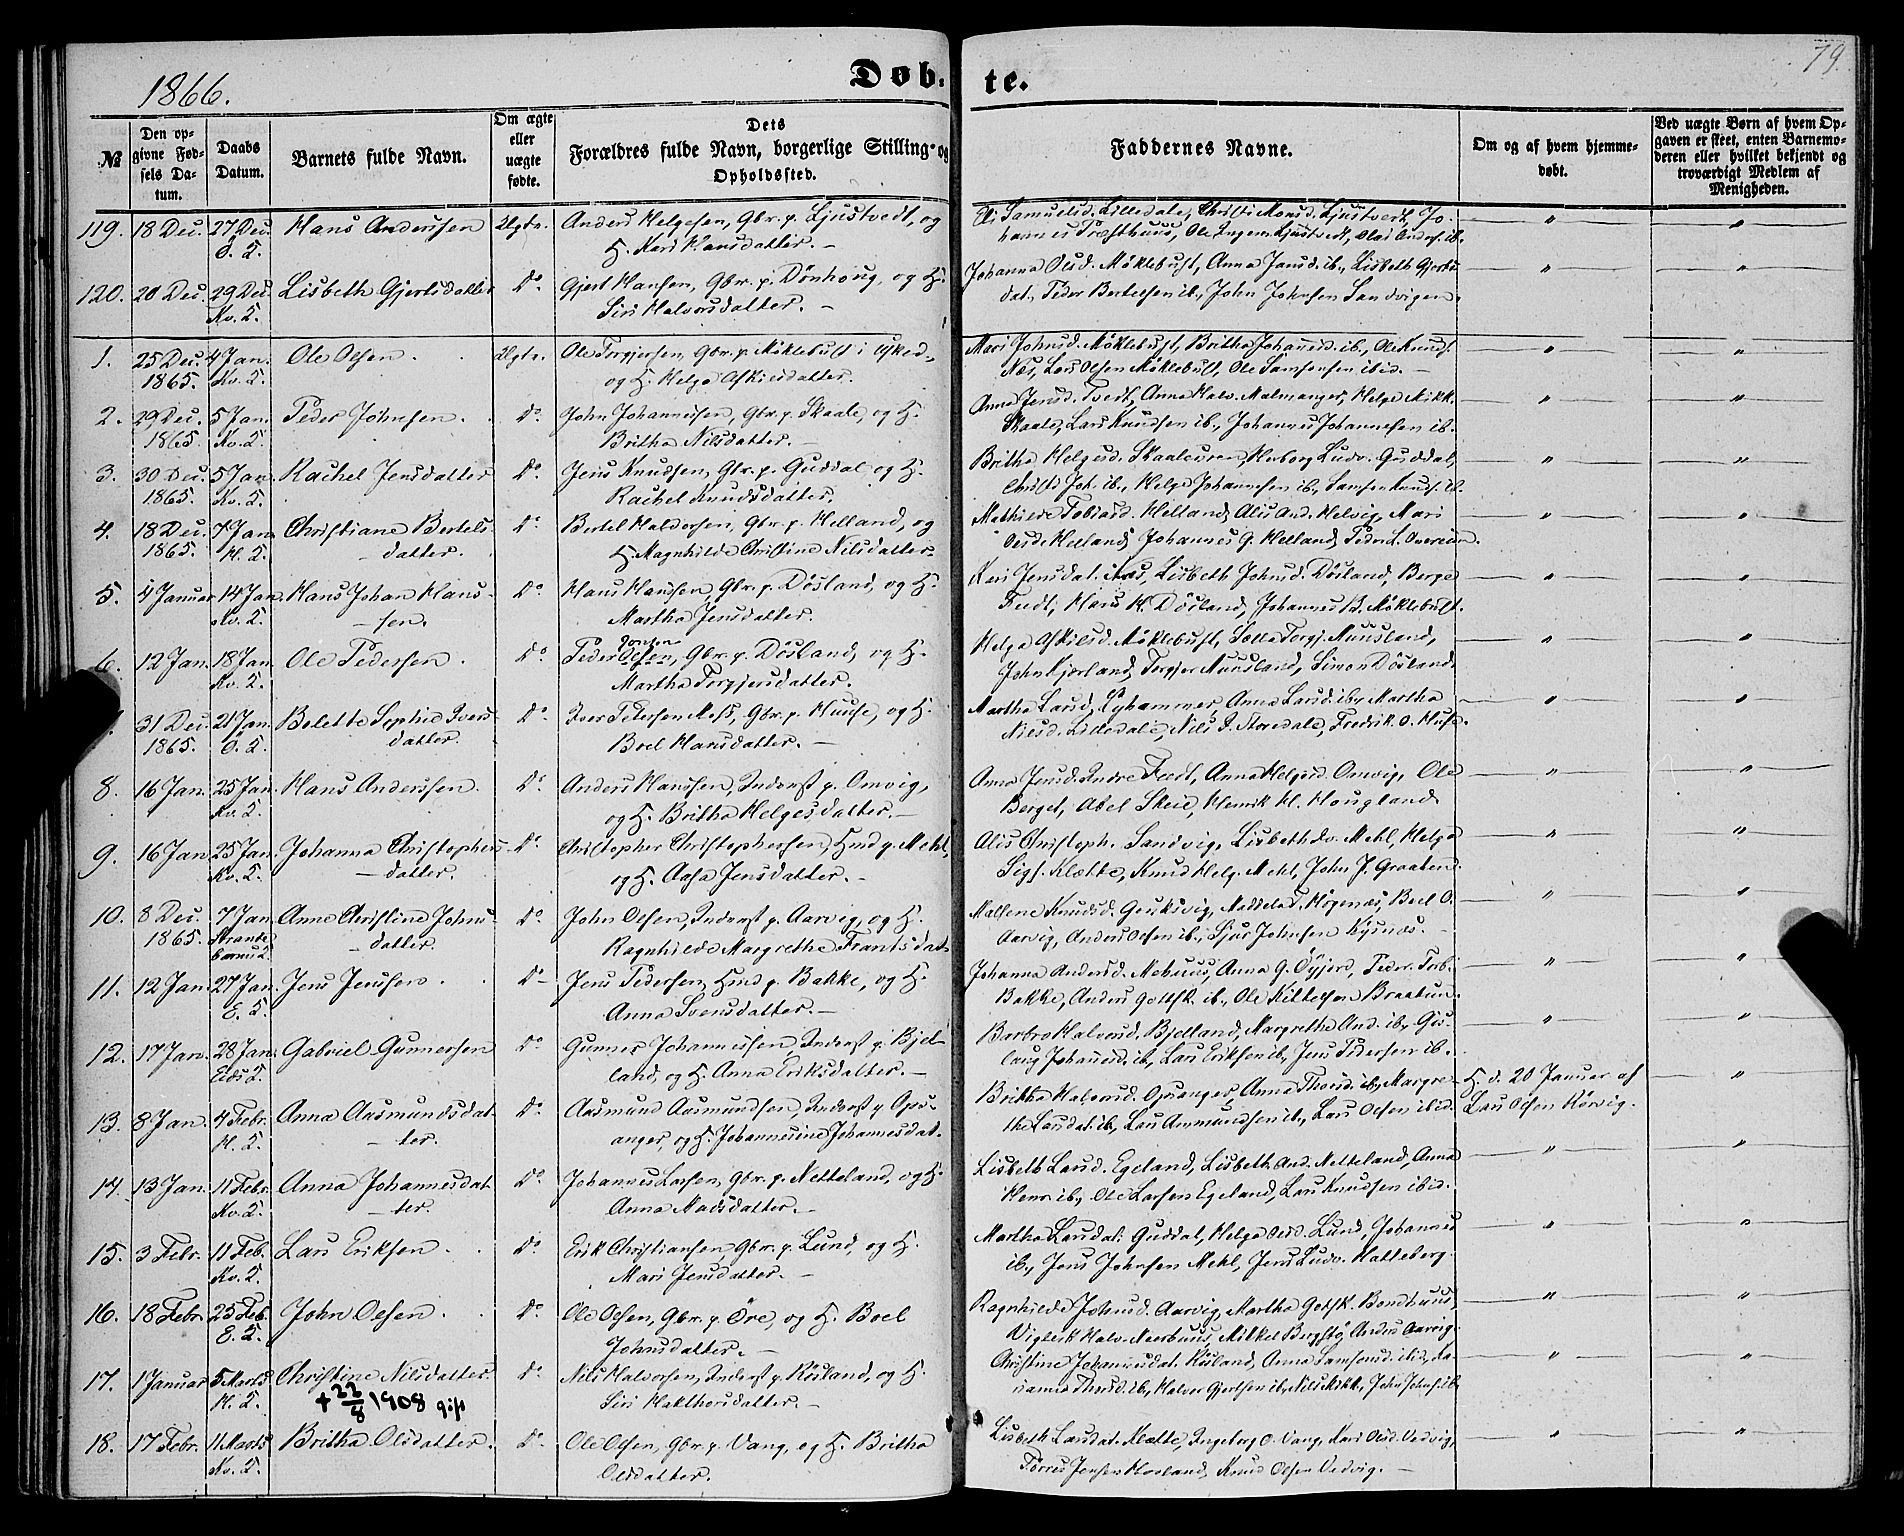 79.
1866.
Døb-
te.
№
Den opgivne Fødsels Datum.
Daabs Datum.
Barnets fulde Navn.
Om ægte eller uægte fødte.
Dets Forældres fulde Navn, borgerlige Stilling og Opholdssted.
Faddernes Navne.
Om og af hvem hjemmedøbt.
Ved uægte Børn af hvem Opgaven er skeet, enten Barnemoderen eller hvilket bekjendt og troværdigt Medlem af Menigheden.
119. 18 Dec. 27 Dec. Hans Anderssen Ægte. Anders Helgesen, Gbr. p. Ljustvedt, og
Ø. K. H. Kari Hansdatter. —
120. 20 Dec. 29 Dec. Lisbeth Gjertsdatter Do Gjert Hansen, Gbr. p. Dønhoug, og H.
Kv. K. Siri Halvorsdatter. —
Johanna Olsd. Møklebust, Anna Jansd. ib., Lisbeth Gjerts
dat., Peder Bertelsen ib., John Johnsen Sandvigen.
1. 25 Dec. 4 Jan. Ole Olsen. Ægte. Ole Torgjersen, Gbr. p. Møklebust i
1865. Kv. K. og H. Helga Askielsdatter.
Mari Johnsd. Møklebust, Britha Johannesd. ib., Ole Knuds.
Næs, Lars Olsen Møklebust, Ole Samsonsen ibid. —
2. 29 Dec. 5 Jan. Peder Johnsen. Do John Johannessen, Gbr. p. Skaale, og H.
1865. Kv. K. Britha Nilsdatter. —
Anna Jensd. Tvedt, Anna Halv. Malmanger, Helge Mikk.
Skaale, Lars Knudsen ib., Johannes Johannesen ib.
3. 30 Dec. 5 Jan. Rachel Jensdatter Do Jens Knudsen, Gbr. p. Guddal og H.
1865. Kv. K. Rachel Knudsdatter.
Britha Helgesd. Skaaleuren, Herborg Ludv. Guddal,
Christi Joh. ib., Helge Johannesen ib., Samson Knuds. ib.
4. 18 Dec. 7 Jan. Christiane Bertels Do Bertel Haldorsen, Gbr. p. Helland, og
1865. H. K. — datter. H. Magnhilde Christine Nilsdatter
Mathilde Tobiasd. Helland, Alis And. Helvig, Mari
Olsd. Helland, Johannes G. Helland, Peder L.
5. 4 Januar 14 Jan. Hans Johan Hans- Do Hans Hanssen, Gbr. p. Døsland, og H.
Kv. K. — sen. Martha Jensdatter.
Kari Jensdat. Næs, Lisbeth Johnsd. Døsland, Berge
Tvedt, Hans H. Døsland, Johannes B. Møklebust.
6. 12 Jan. 18 Jan. Ole Pedersen. Do Peder Olsen, Gbr. p. Døsland, og H.
Kv. K. Martha Torgjersdatter.
Helga Askilsd. Møklebust, Torgj. Muusland,
John Kjærland, Torgjer Muusland, Simon Døsland.
31 Dec. 21 Jan. Belette Sophie Ivers Do Iver Pedersen Moss, Gbr. p. Huuse, og H.
1865. Ø. K. datter. Boel Hansdatter. —
Martha Larsd. Nyhammer, Anna Larsd. ib., Martha
Nilsd. Lilledale, Nils I. Storedale, Fredrik O. Huse.
8. 16 Jan. 25 Jan. Hans Anderssen. Do Anders Hanssen, Inderst p. Omvig,
Kv. K. og H. Britha Helgesdatter. —
Anna Jensd. Indre Tvedt, Anna Helgesd. Omvig, Ole
Berget, Abel Skeie, Henrik H. Hougland
9. 16 Jan. 25 Jan. Johanna Christophers Do Christopher Christophersen, Hmd p. Mehl,
Kv. K. — datter. og H. Aasa Jensdatter. —
Alis Christoph. Sandvig, Lisbeth Mehl, Helge
Sigf. Klætte, Knud Helg. Mehl, John J. Graaten.
10. 8 Dec. 7 Jan. Anne Christine Johns- Do John Olsen, Inderst p. Aarvig, og H.
1865. Strande — datter. Ragnhilde Margrethe Frantsdat.
barms K.
Aarvig, Anders Olsen ib., Sjur Johnsen Kysnæs. —
11. 12 Jan. 27 Jan. Jens Jensen. Do Jens Pedersen, Hmd p. Bakke, og H.
E. K. Anna Svensdatter. —
Johanna Andersd. Mehuus, Anna G. Øyjord, Peder Torb.
Bakke, Anders Gottsk. ib., Ole Kittelsen Braatun.
12. 17 Jan. 28 Jan. Gabriel Gunnersen Do Gunner Johannessen, Inderst p. Bjel-
Eids K. land, og H. Anna Eriksdatter. —
Barbro Halvorsd. Bjelland, Margretha And. ib., Gis-
laug Johannesd. ib., Lars Eriksen ib., Jens Pedersen ib.
13. 8 Jan. 4 Febr. Anna Aasmundsdat- Do Aasmund Aasmundsen, Inderst p. Ops-
H. K. — ter. anger, og H. Johannesine Johannesdat.
Britha Halvorsd. Opsanger, Anna Thorsd. ib., Margre-
the Larsdat. ib., Lars Ammundsen ib., Lars Olsen ibid.
H. d. 20 Januar af
Lars Olsen Rørvig.
14. 13 Jan. 11 Febr. Anna Johannesdat- Do Johannes Larsen, Gbr. p. Netteland, og H.
Kv. K. — ter. Anna Madsdatter. —
Lisbeth Larsd. Egeland, Lisbeth And. Netteland, Anna
Henr. ib., Ole Larsen Egeland, Lars Knudsen ibid.
15. 3 Febr. 11 Feb. Lars Eriksen. Do Erik Christiansen, Gbr. p. Lund, og H.
Kv. K. Mari Jensdatter. —
Martha Larsdat. Guddal, Helga Olsd. Lund, Johannes
ib., Jens Johnsen Mehl, Jens Ludv. Hatteberg.
16. 18 Febr. 25 Feb. John Olsen. Do Ole Olsen, Gbr. p. Øre, og H. Boel
E. K. Johnsdatter. —
Ragnhilde Johnsd. Aarvig, Martha Gotsk. Bondhuus,
Vigleik Halv. Neerhuus, Mikkel Bergstø, Anders Aarvig.
17. 1 Januar 5 Marts Christine Nilsdatter. Do Nils Halvorsen, Inderst p. Røsland, og H.
H. K. + 22/8 1908 gift Siri Halthorsdatter. —
Christine Johannesdat. Røsland, Anna Samsonsd. ibid.,
Thorsd. ib., Halvor Gjertsen ib., Nils Mikk., John Johns. ib.
18. 17 Febr. 11 Marts Britha Olsdatter. Do Ole Olsen, Gbr. p. Vang, og H. Britha
Kv. K. Olsdatter.
Lisbeth Larsdat. Klætte, Ingeborg O. Vang, Kari Olsd. Vedvig,
Tørres Jensen Hovland, Knud Olsen Vedvig. —